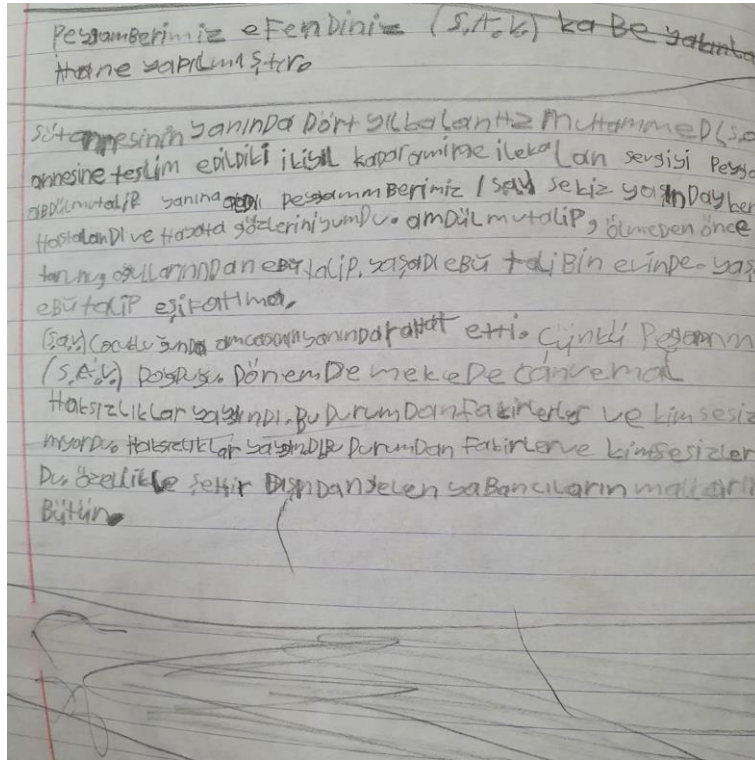 Peygamberimiz eFenDimiz (S.A.V.) kaBe yakınla
Hane yapılmıştır.
sütannesinin yanınDa Dört yıl kalan Hz MuHammeD (s,a
annesine teslim eDilDi iki yıl kalan sevgiyi Peyga
abDülmutaliP yanına peygammBerimiz sekiz yaşınDayken
HastalanDı ve Hayata gözlerini yumDu. amDülmutaliP, ölmeDen önce
oğullarınnDan eBû taliP. yaşaDı eBû taliBin evinDe. yaş
eBû taliP eşi Fatıma,
(s.a.v.) çocukluğunDa amcasının yanınDa raHat etti. Çünkü Pegamm
(S.A.V.) DoğDuğu DönemDe mekeDe can ve mal
Haksızlıklar yayğınDı. Bu DurumDan Fakirlerler ve kimsesiz
mıyorDu. Haksızlıklar yayğınDı Bu DurumDan Fakirler ve kimsesizler
Du. özellikle şeHir DışınDan gelen yaBancıların malları
Bütün.